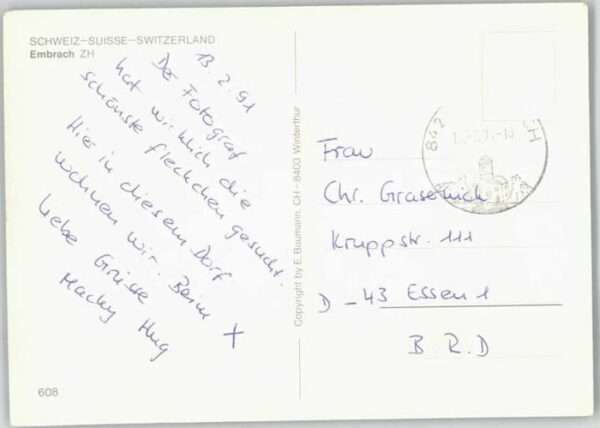 SCHWEIZ–SUISSE–SWITZERLAND
Embrach ZH
13.2.91
Der Fotograf
hat wirklich die
schönste fleckchen gesucht.
Hier in diesem Dorf
wohnen wir. Beim +
liebe Grüsse
Macky Hug
608
Copyright by E. Baumann, CH–8400 Winterthur
842
Frau
Chr.
Kruppstr. 111
D – 43 Essen 1
B. R. D